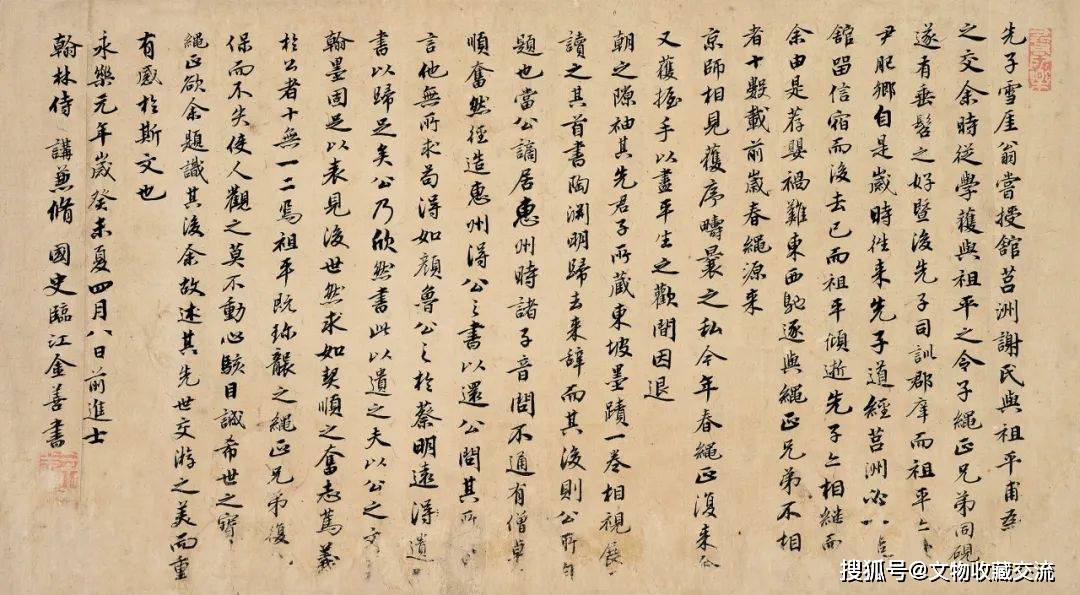 先子雪厓翁嘗授舘莒洲謝氏與祖平甫爲
之交余時従學獲與祖平之令子繩正兄弟同硯
遂有垂髫之好曁後先子司訓郡庠而祖平亦
尹肥鄉自是歲時徃来先子道經莒洲必
舘留信宿而後去已而祖平傾逝先子亦相継而
余由是荐嬰禍難東西馳逐與繩正兄弟不相
者十數載前歲春繩源来
京師相見獲序疇曩之私今年春繩正復来
又獲握手以盡平生之歡間因退
朝之隙袖其先君子所蔵東坡墨蹟一卷相視展
讀之其首書陶淵明歸去来辭而其後則公所
題也當公謫居惠州時諸子音問不通有僧卓
順奮然徑造惠州得公之書以還公問其所
言他無所求苟得如顔魯公之於蔡明遠得遺
書以歸足矣公乃欣然書此以遺之夫以公之文
翰墨固足以表見後世然求如契順之奮志篤義
於公者十無一二焉祖平既珎襲之繩正兄弟復
保而不失使人觀之莫不動心駭目誠希世之寶
繩正欲余題識其後余故述其先世交游之美而重
有感於斯文也
永樂元年歲癸未夏四月八日前進士
翰林侍講兼脩國史臨江金善書
搜狐号@文物收藏交流